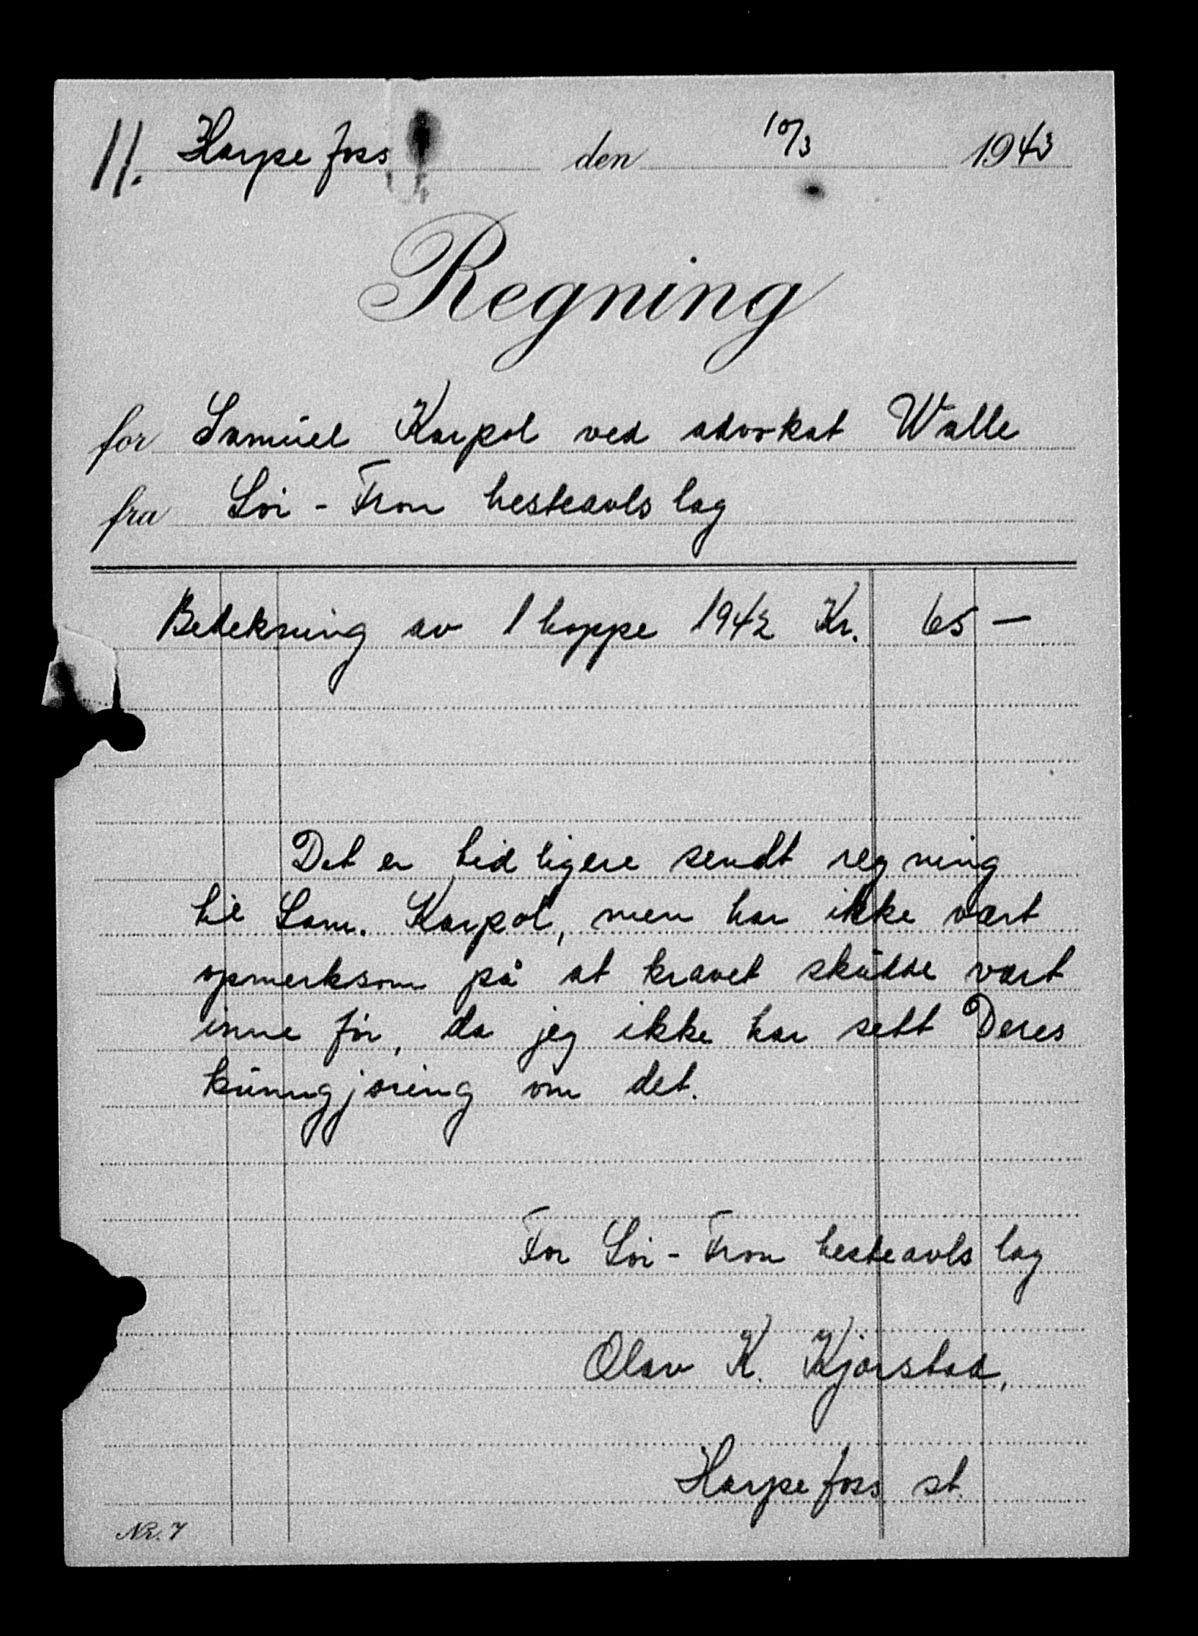 11. Harpefoss den 10/3 1943
Regning
for Samuel Karpol ved advokat Walle
fra Sør-Fron hesteavlslag
Bedekning av 1 hoppe 1942 Kr. 65 —
Det er tidligere sendt regning
til Sam. Karpol, men har ikke vært
opmerksom på at kravet skulde vært
inne før, da jeg ikke har sett Deres
kunngjøring om det.
For Sør-Fron hesteavlslag
Olav K. Kjørstad,
Harpefoss st.
Nr. 7